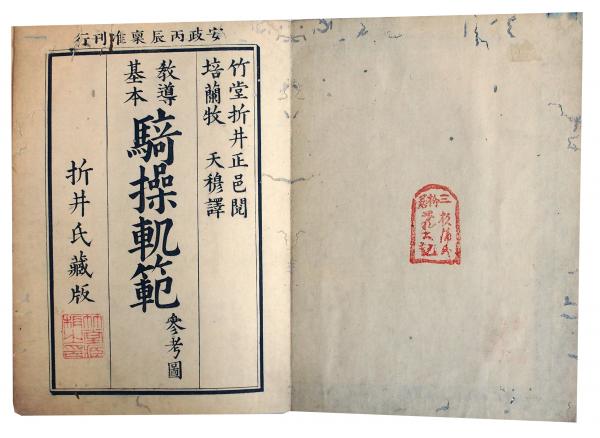 安政丙辰稟准刊行
竹堂折井正邑閲
培蘭牧 天穆譯
教導
基本
騎操軌範
參考圖
折井氏藏版